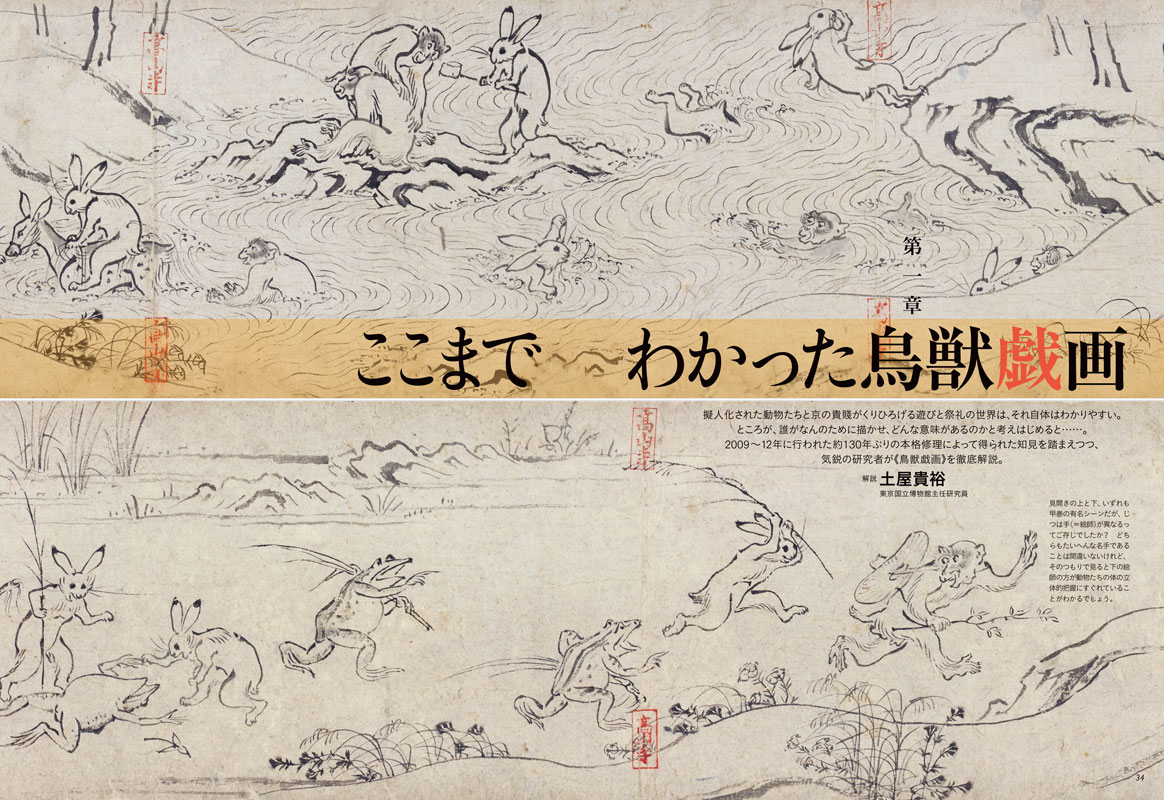 第一章
ここまで わかった鳥獣戯画
擬人化された動物たちと京の貴賤がくりひろげる遊びと祭礼の世界は、それ自体はわかりやすい。
ところが、誰がなんのために描かせ、どんな意味があるのかと考えはじめると……。
2009〜12年に行われた約130年ぶりの本格修理によって得られた知見を踏まえつつ、
気鋭の研究者が《鳥獣戯画》を徹底解説。
解説 土屋貴裕
東京国立博物館主任研究員
見開きの上と下、いずれも
甲巻の有名シーンだが、じ
つは手(=絵師)が異なるっ
てご存じでしたか？ どち
らもたいへんな名手である
ことは間違いないけれど、
そのつもりで見ると下の絵
師の方が動物たちの体の立
体的把握にすぐれているこ
とがわかるでしょう。
高山寺
高山寺
34